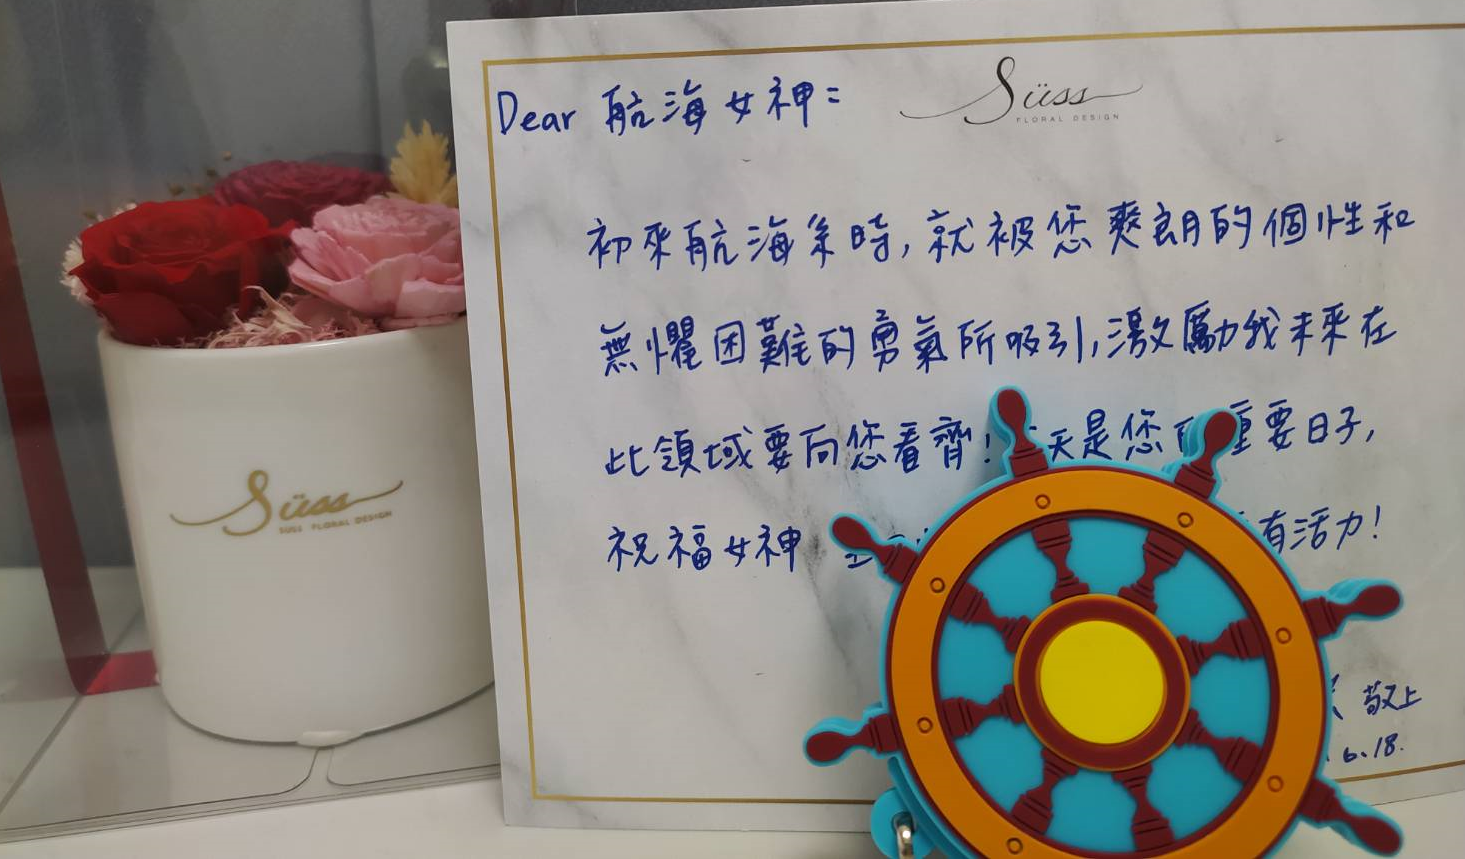 Süss
FLORAL DESIGN
Dear 航海女神：
初來航海系時，就被您爽朗的個性和
無懼困難的勇氣所吸引，激勵我未來在
此領域要向您看齊！天是您 重要日子，
祝福女神 有活力！
敬上
6.18.
Süss
SÜSS FLORAL DESIGN